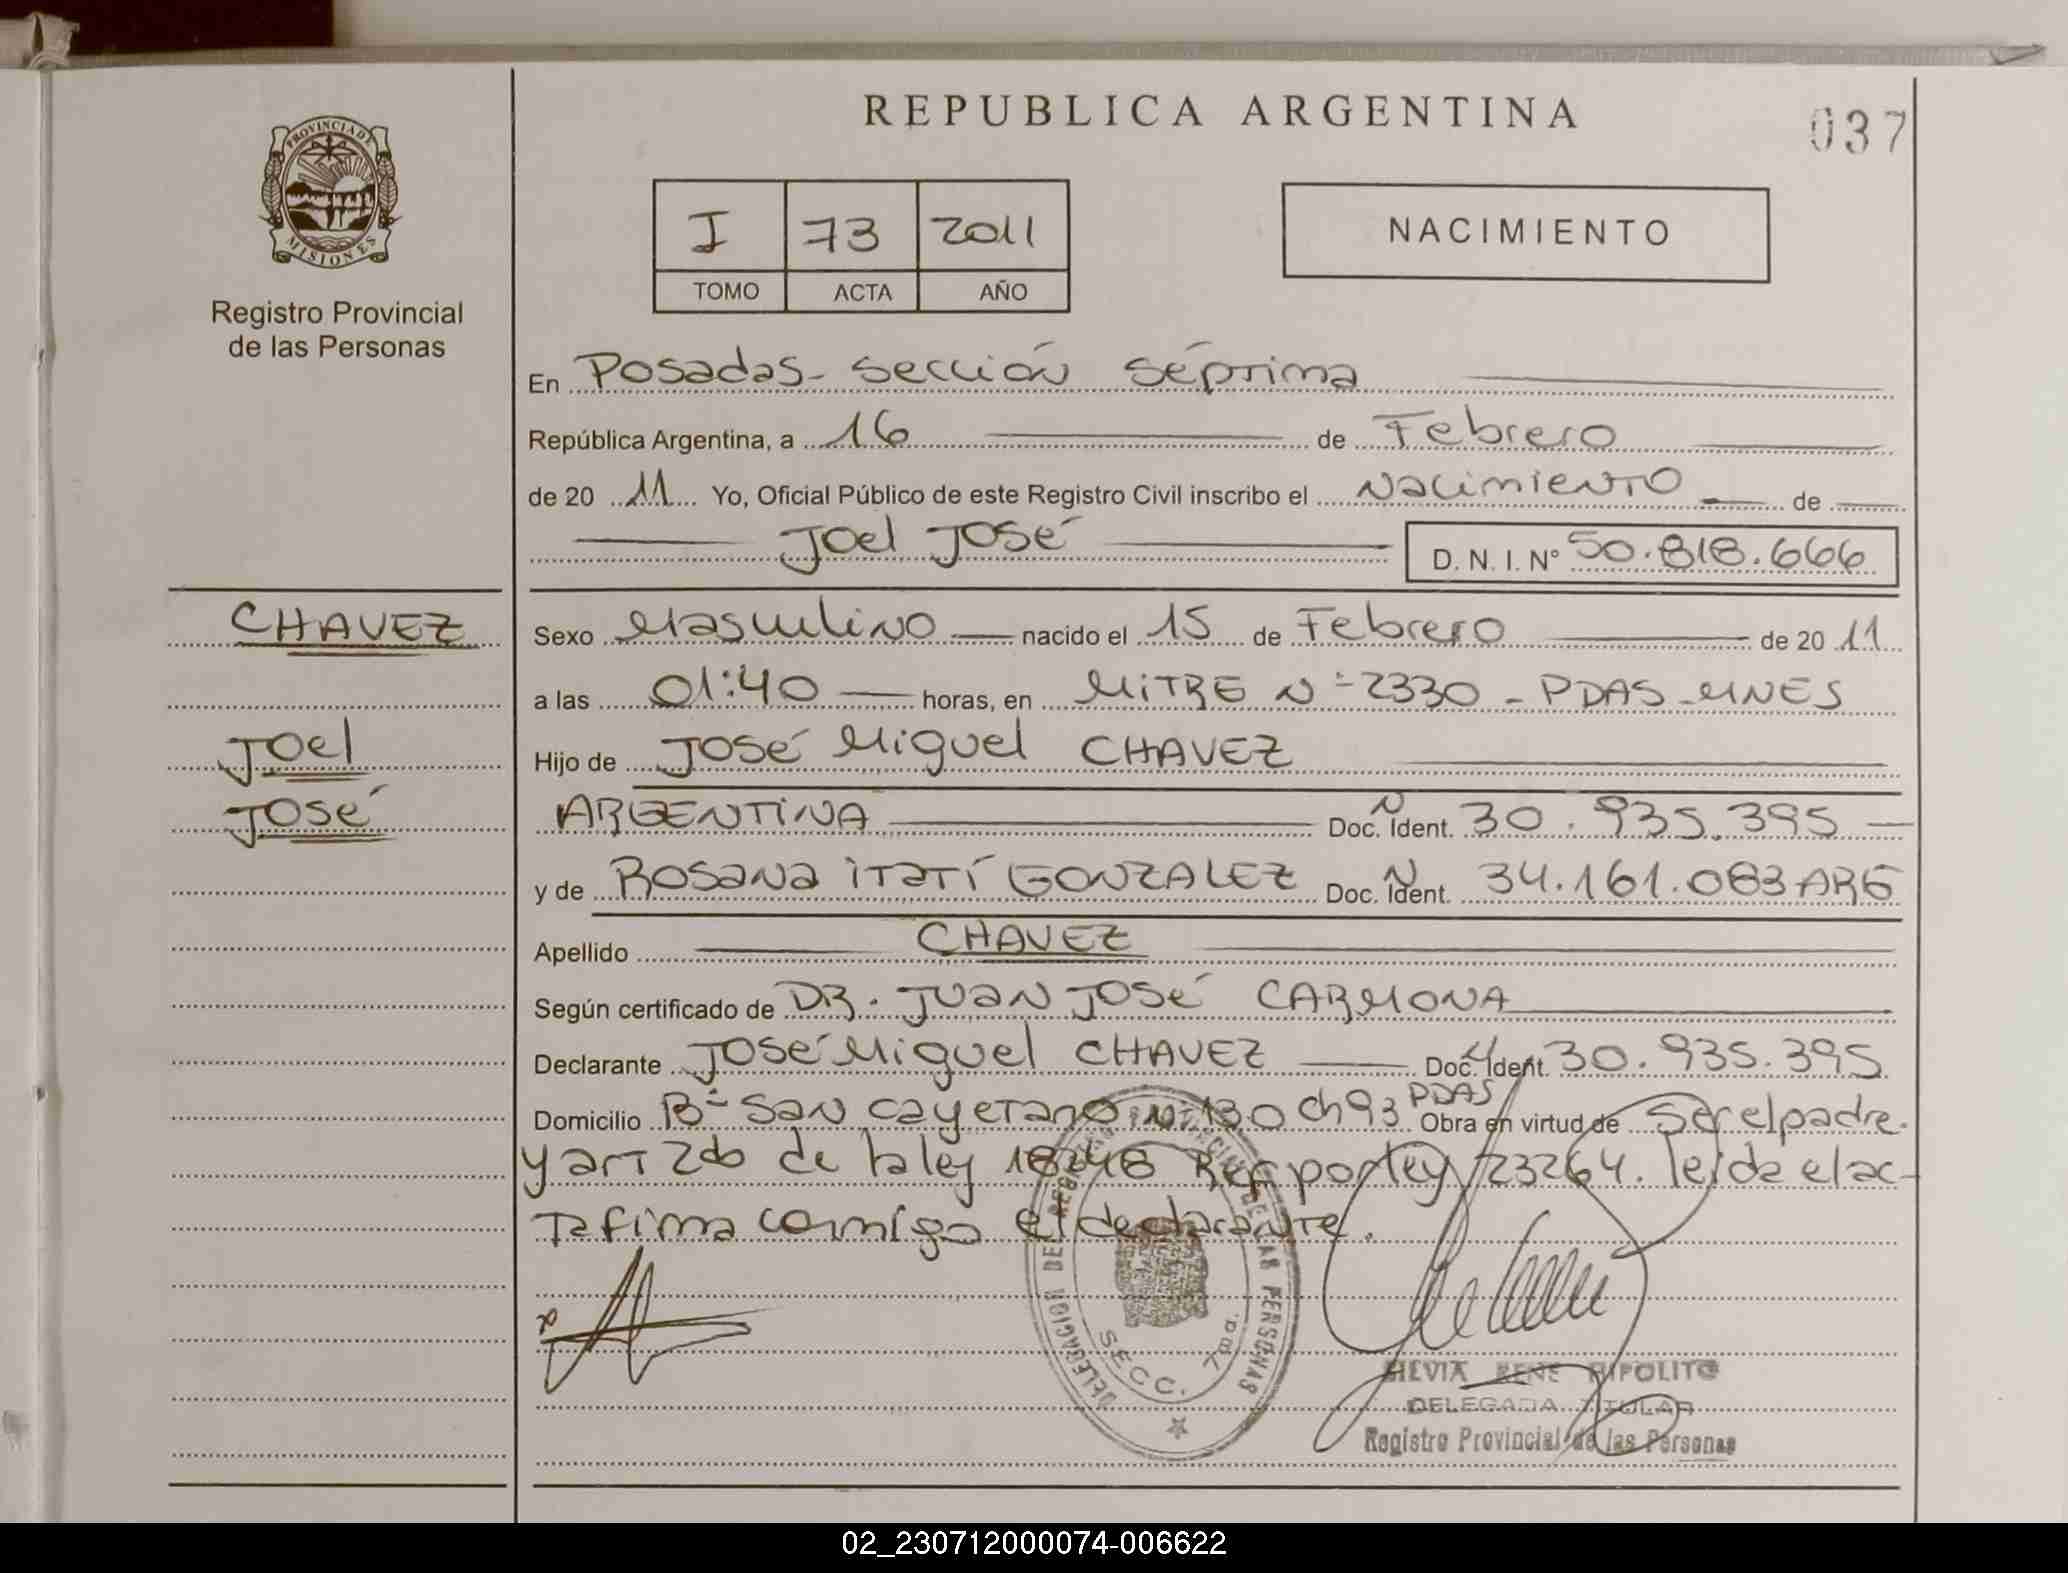 REPUBLICA ARGENTINA
037
PROVINCIA DE MISIONES
Registro Provincial
de las Personas
I 73 2011
TOMO ACTA AÑO
NACIMIENTO
En Posadas - sección séptima
República Argentina, a 16 de Febrero
de 20 11 Yo, Oficial Público de este Registro Civil inscribo el Nacimiento de
Joel José D. N. I. Nº 50.818.666
CHAVEZ
Sexo Masculino nacido el 15 de Febrero de 20 11
a las 01:40 horas, en MITRE Nº 2330 - PDAS - MNES
Joel
Hijo de José Miguel CHAVEZ
José
ARGENTINA Doc. Ident. N 30.935.395
y de Rosana Itatí GONZALEZ Doc. Ident. N 34.161.083 ARG
Apellido CHAVEZ
Según certificado de DR. Juan José CARMONA
Declarante José Miguel CHAVEZ Doc. Ident. 30.935.395
Domicilio Bº San Cayetano Nº 130 Ch 93 PDAS Obra en virtud de ser el padre.
y art 2do de la ley 18248 Ref por ley 23264. leida el ac-
ta firma conmigo el declarante.
DELEGACION DEL REGISTRO PROVINCIAL DE LAS PERSONAS
SECC. 7ma.
SILVIA RENE HIPOLITO
DELEGADA TITULAR
Registro Provincial de las Personas
02_230712000074-006622